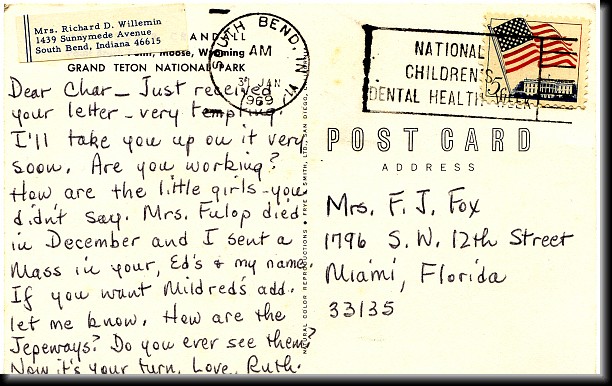 Mrs. Richard D. Willemin
1439 Sunnymede Avenue
South Bend, Indiana 46615
Moose, Wyoming
GRAND TETON NATIONAL PARK
Dear Char — Just received
your letter - very tempting.
I'll take you up on it very
soon. Are you working?
How are the little girls - you
didn't say. Mrs. Fulop died
in December and I sent a
Mass in your, Ed's & my name.
If you want Mildred's add.
let me know. How are the
Jepeways? Do you ever see them?
Now it's your turn. Love, Ruth.
NATURAL COLOR REPRODUCTIONS • FRYE & SMITH, LTD., SAN DIEGO,
SOUTH BEND, IN
AM
JAN
1969
NATIONAL
CHILDREN'S
DENTAL HEALTH WEEK
POST CARD
ADDRESS
Mrs. F. J. Fox
1796 S. W. 12th Street
Miami, Florida
33135